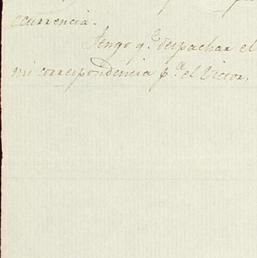 currencia.
Tengo q.e despachar el
mi correspondencia p.a el Victor,